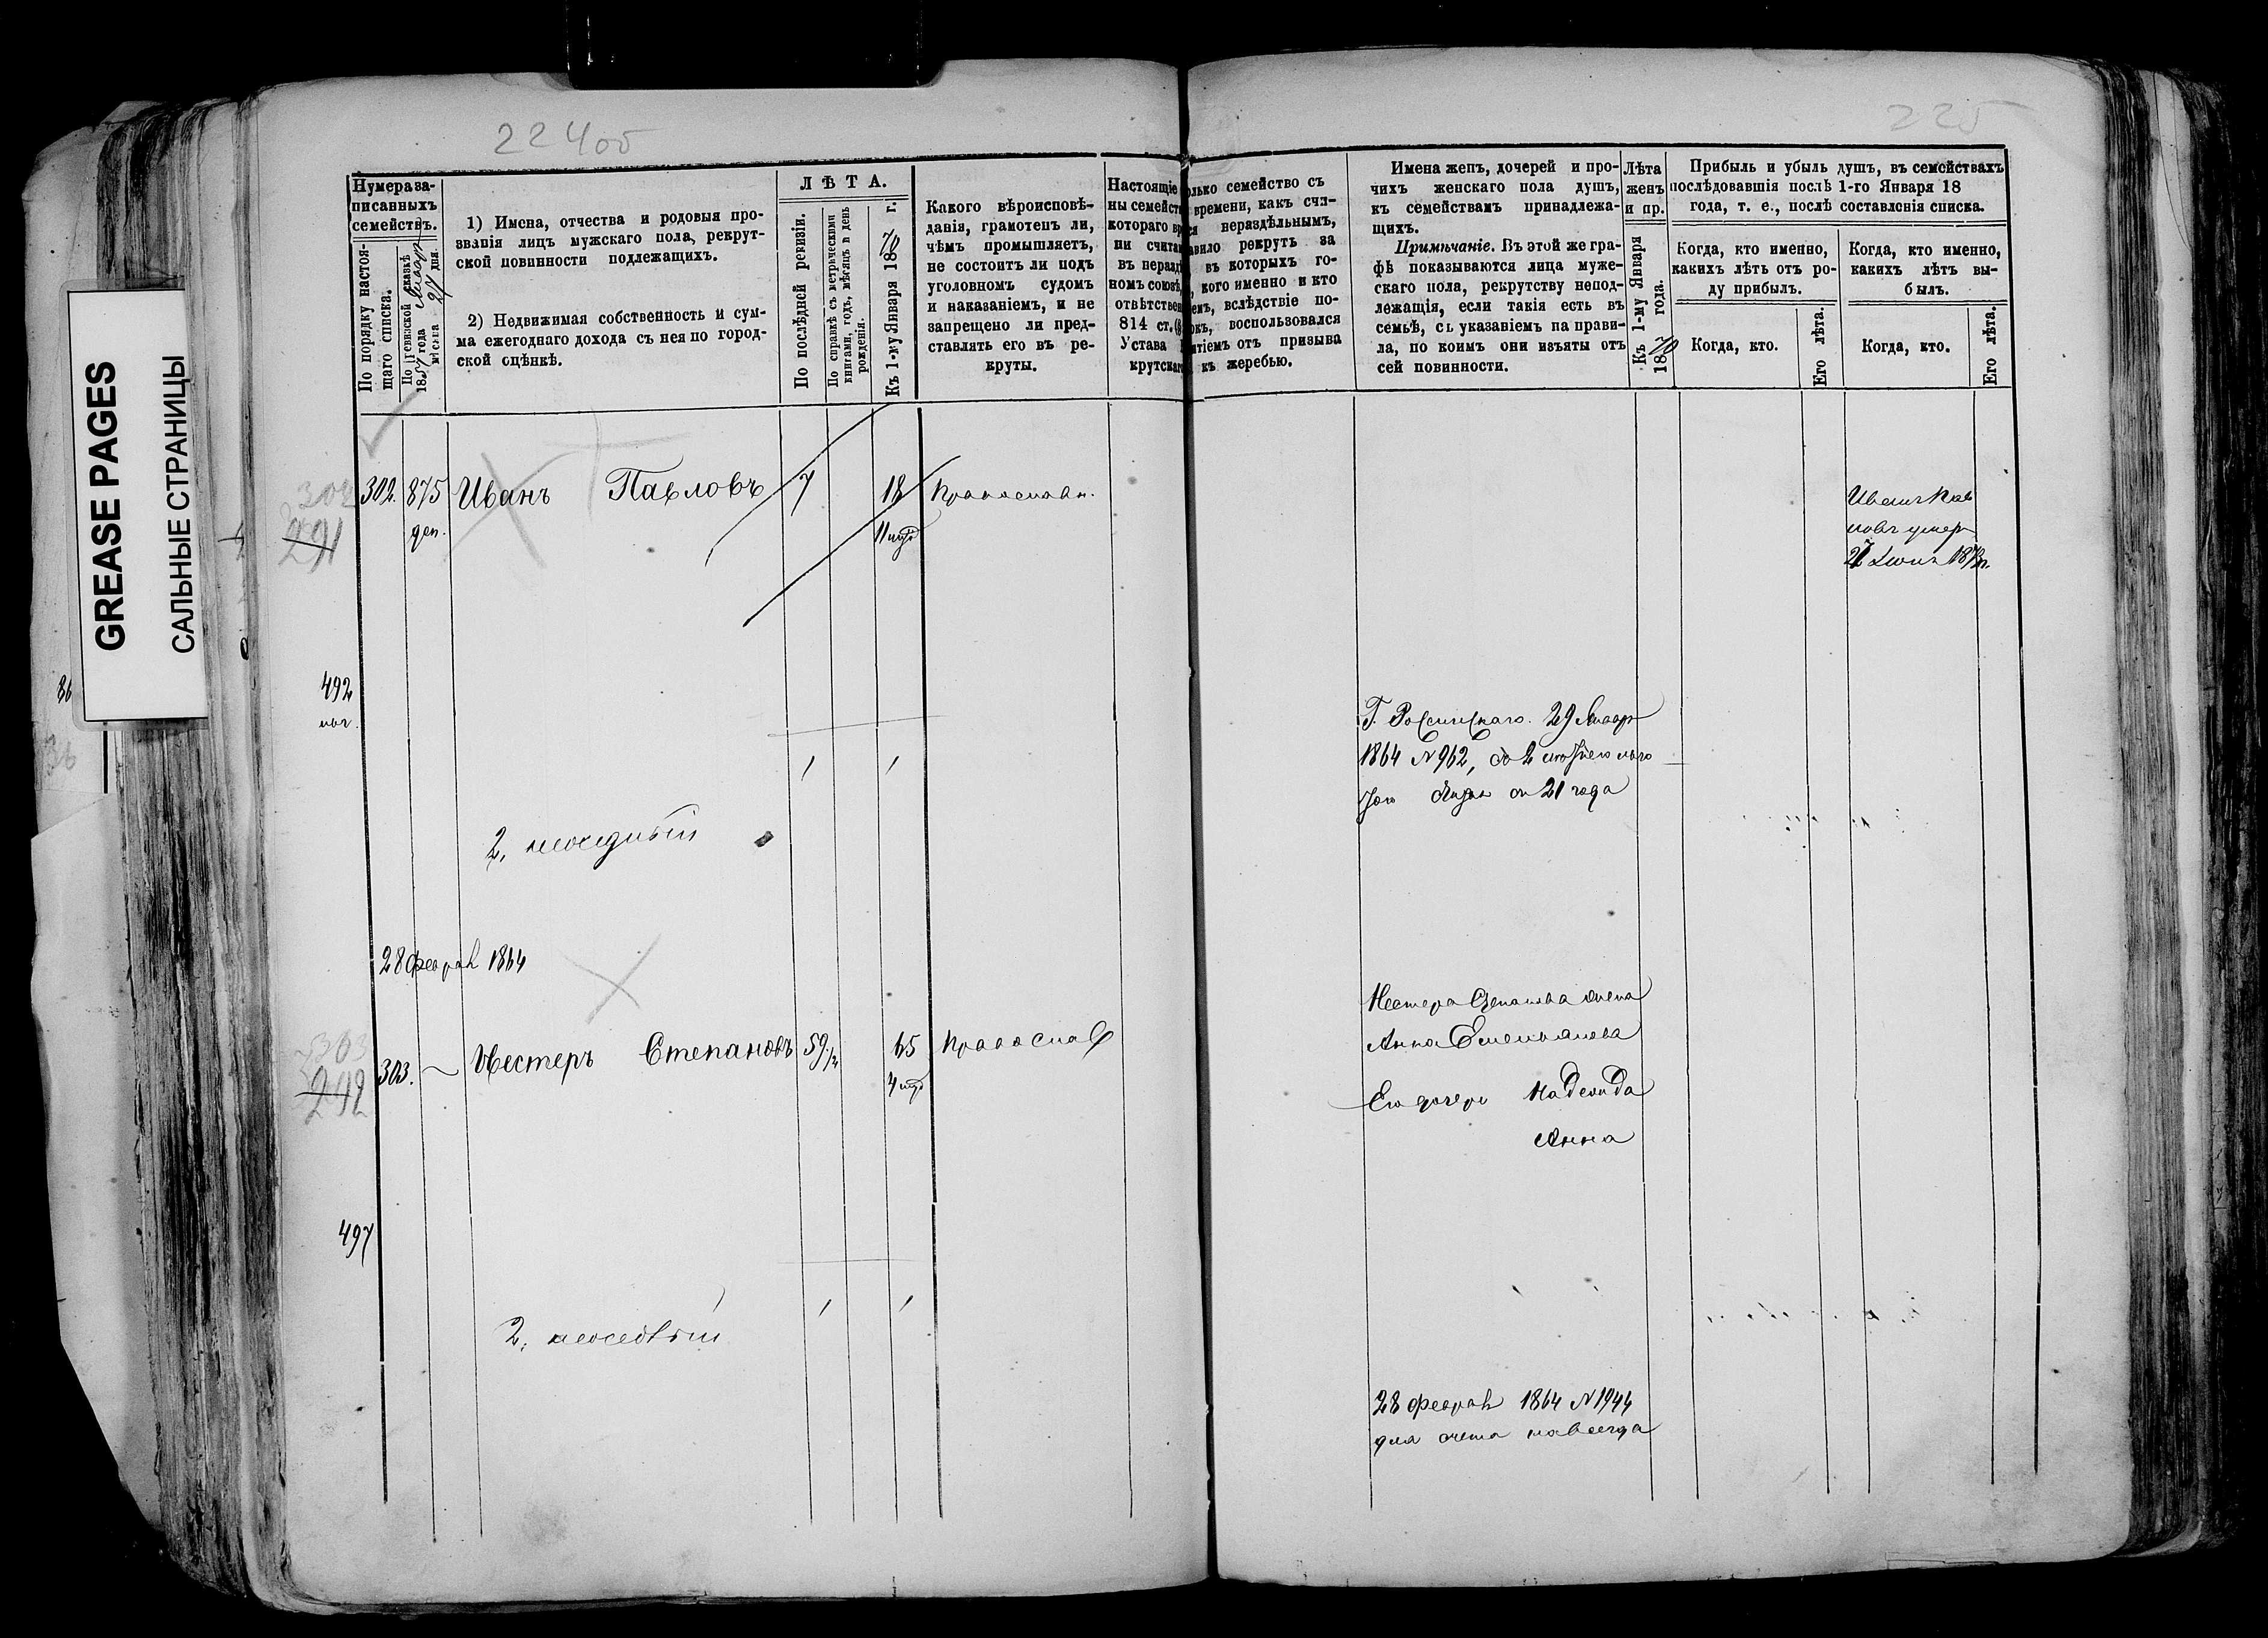 224об
225
GREASE PAGES
САЛЬНЫЕ СТРАНИЦЫ
Нумера за-
писанныхъ
семействъ.
По порядку настоя-
щаго списка.
1) Имена, отчества и родовыя про-
званія лицъ мужскаго пола, рекрут-
ской повинности подлежащихъ.
2) Недвижимая собственность и сум-
ма ежегоднаго дохода съ нея по город-
ской оцѣнкѣ.
ЛѢТА.
По послѣдней ревизіи.
По справкѣ съ метрическими
книгами, годъ, мѣсяцъ и день
рожденія.
Къ 1-му Января 1870 г.
Какого вѣроисповѣ-
данія, грамотенъ ли,
чѣмъ промышляетъ,
не состоитъ ли подъ
уголовномъ судомъ
и наказаніемъ, и не
запрещено ли пред-
ставлять его въ ре-
круты.
Настоящіе
ны семейст
котораго вр
ни считае
въ неразд
номъ союзѣ
отвѣтствен
814 ст.
Устава
крутска
олько семейство съ
времени, какъ счи-
ся нераздѣльнымъ,
авило рекрутъ за
въ которыхъ го-
кого именно и кто
емъ, вслѣдствіе по-
окъ, воспользовался
ятіемъ отъ призыва
къ жеребью.
Имена женъ, дочерей и про-
чихъ женскаго пола душъ,
къ семействамъ принадлежа-
щихъ.
Примѣчаніе. Въ этой же гра-
фѣ показываются лица муже-
скаго пола, рекрутству непод-
лежащія, если такія есть въ
семьѣ, съ указаніемъ на прави-
ла, по коимъ они изъяты отъ
сей повинности.
Лѣта
женъ
и пр.
Къ 1-му Января
1870 года.
Прибыль и убыль душъ, въ семействахъ
послѣдовавшія послѣ 1-го Января 18
года, т. е., послѣ составленія списка.
Когда, кто именно,
какихъ лѣтъ отъ ро-
ду прибылъ.
Когда, кто именно,
какихъ лѣтъ вы-
былъ.
Когда, кто.
Его лѣта.
Когда, кто.
Его лѣта.
302
291
302. 875 Иванъ Павловъ 7 18 Православн.
доп.
Иванъ Пав
ловъ умер
27 Іюня
492
29 Январ
1864 №962,
21 года
2, неоседлый
28 Феврал 1864
303
292
303. Нестеръ Степановъ 59 1/2 65 Православ
Нестера Степанова жена
Анна Емельянова
Его дочери Надежда
Анна
497
2, неоседлый
28 Феврал 1864 №1944
для счета навсегда